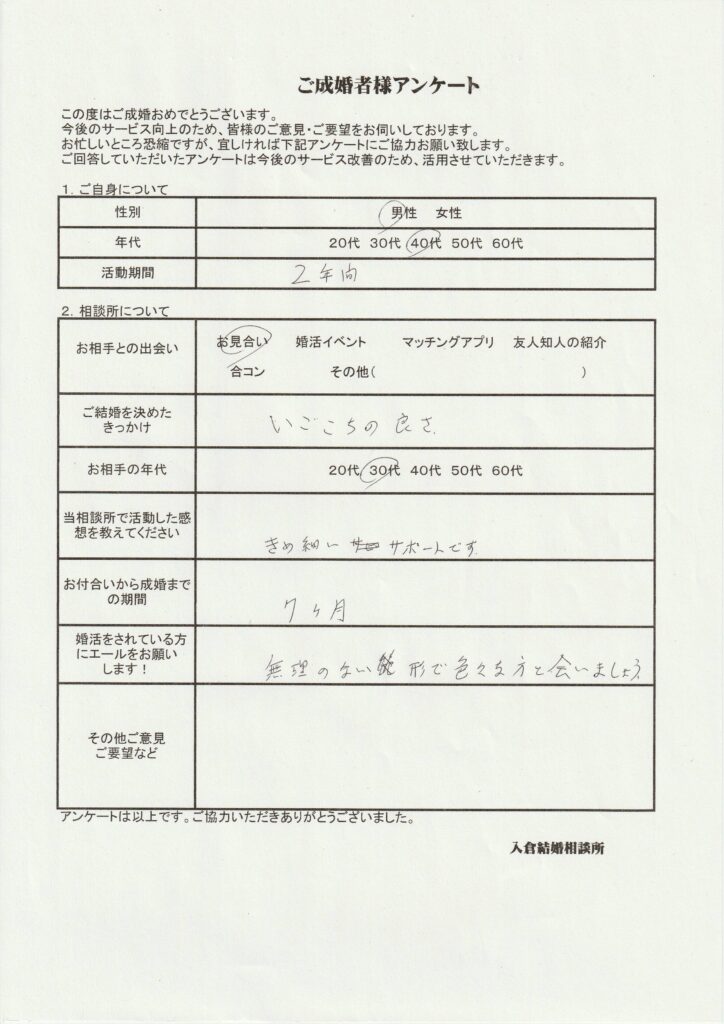 ご成婚者様アンケート
この度はご成婚おめでとうございます。
今後のサービス向上のため、皆様のご意見・ご要望をお伺いしております。
お忙しいところ恐縮ですが、宜しければ下記アンケートにご協力お願い致します。
ご回答していただいたアンケートは今後のサービス改善のため、活用させていただきます。
1. ご自身について
性別 男性 女性
年代 20代 30代 40代 50代 60代
活動期間 2年間
2. 相談所について
お相手との出会い お見合い 婚活イベント マッチングアプリ 友人知人の紹介
合コン その他( )
ご結婚を決めた
きっかけ いごこちの良さ
お相手の年代 20代 30代 40代 50代 60代
当相談所で活動した感
想を教えてください きめ細い サポートです
お付合いから成婚まで
の期間 7ヶ月
婚活をされている方
にエールをお願い
します! 無理のない 形で色々な方と会いましょう
その他ご意見
ご要望など
アンケートは以上です。ご協力いただきありがとうございました。
入倉結婚相談所